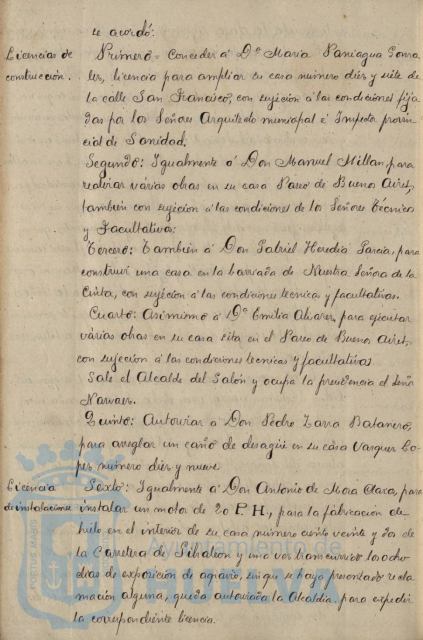 se acordó:
Licencias de
construcción.
Primero = Conceder á Dª Maria Paniagua Gonza-
les, licencia para ampliar su casa número diez y siete de
la calle San Francisco, con sujeción á las condiciones fija
das por los Señores Arquitecto municipal é Inspector provin
cial de Sanidad.
Segundo: Igualmente á Don Manuel Millan, para
realizar várias obras en su casa Paseo de Buenos Aires,
también con sujeción á las condiciones de los Señores Técnico
y Facultativo:
Tercero: También á Don Gabriel Heredia Garcia, para
construir una casa en la barriada de Nuestra Señora de la
Cinta, con sujeción á las condiciones técnicas y facultativas.
Cuarto: Asimismo á Dª Emilia Alvarez, para ejecutar
várias obras en su casa sita en el Paseo de Buenos Aires,
con sujeción á las condiciones técnicas y facultativas.
Sale el Alcalde del Salón y ocupa la presidencia el Señor
Narvaez.
Quinto: Autorizar a Don Pedro Zarza Batanero,
para arreglar un caño de desagüe en su casa Vazquez Lo-
pez, número diez y nueve
Licencia
de instalaciones
Sexto: Igualmente á Don Antonio de Mora Claros, para
instalar un motor de 20 P.H., para la fabricación de
hielo, en el interior de su casa número ciento veinte y dos de
la Carretera de Gibraleon y una vez transcurrido los ocho
dias de exposición de agravio, sin que se haya presentado recla
mación alguna, queda autorizada la Alcaldía para expedir
la correspondiente licencia.
PORTUS MARIS
Ayuntamiento de
HUELVA